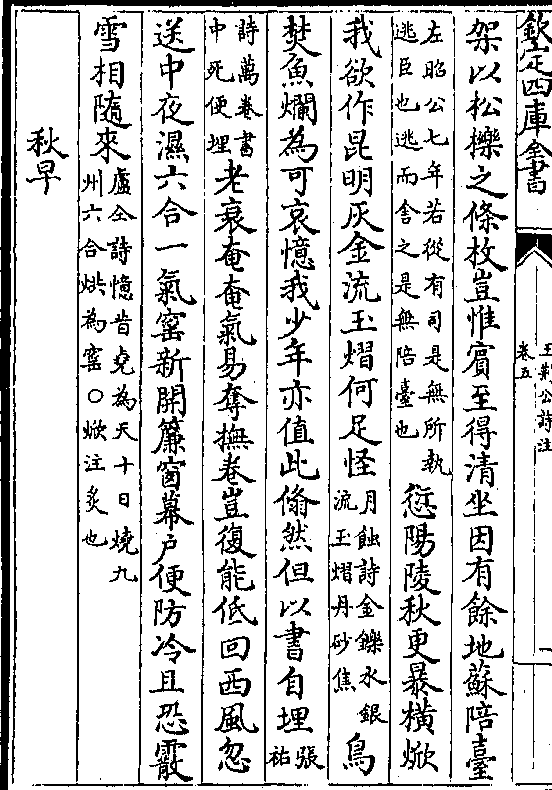 欽定四庫全書
王荆公詩注
卷五
架以松櫟之條枚豈惟賓至得清坐因有餘地蘇陪臺
左昭公七年若從有司是無所執
逃臣也逃而舍之是無陪臺也
愆陽陵秋更暴橫焮
我欲作昆明灰金流玉熠何足怪
月蝕詩金鑠水銀
流玉熠丹砂焦
鳥
焚魚爛為可哀憶我少年亦值此翛然但以書自埋
張
祐
詩萬卷書
中死便埋
老衰奄奄氣易奪撫卷豈復能低回西風忽
送中夜濕六合一氣窑新開簾窗幕戶便防冷且恐霰
雪相隨來
盧仝詩憶昔堯為天十日燒九
州六合烘為窑○焮注炙也
秋早